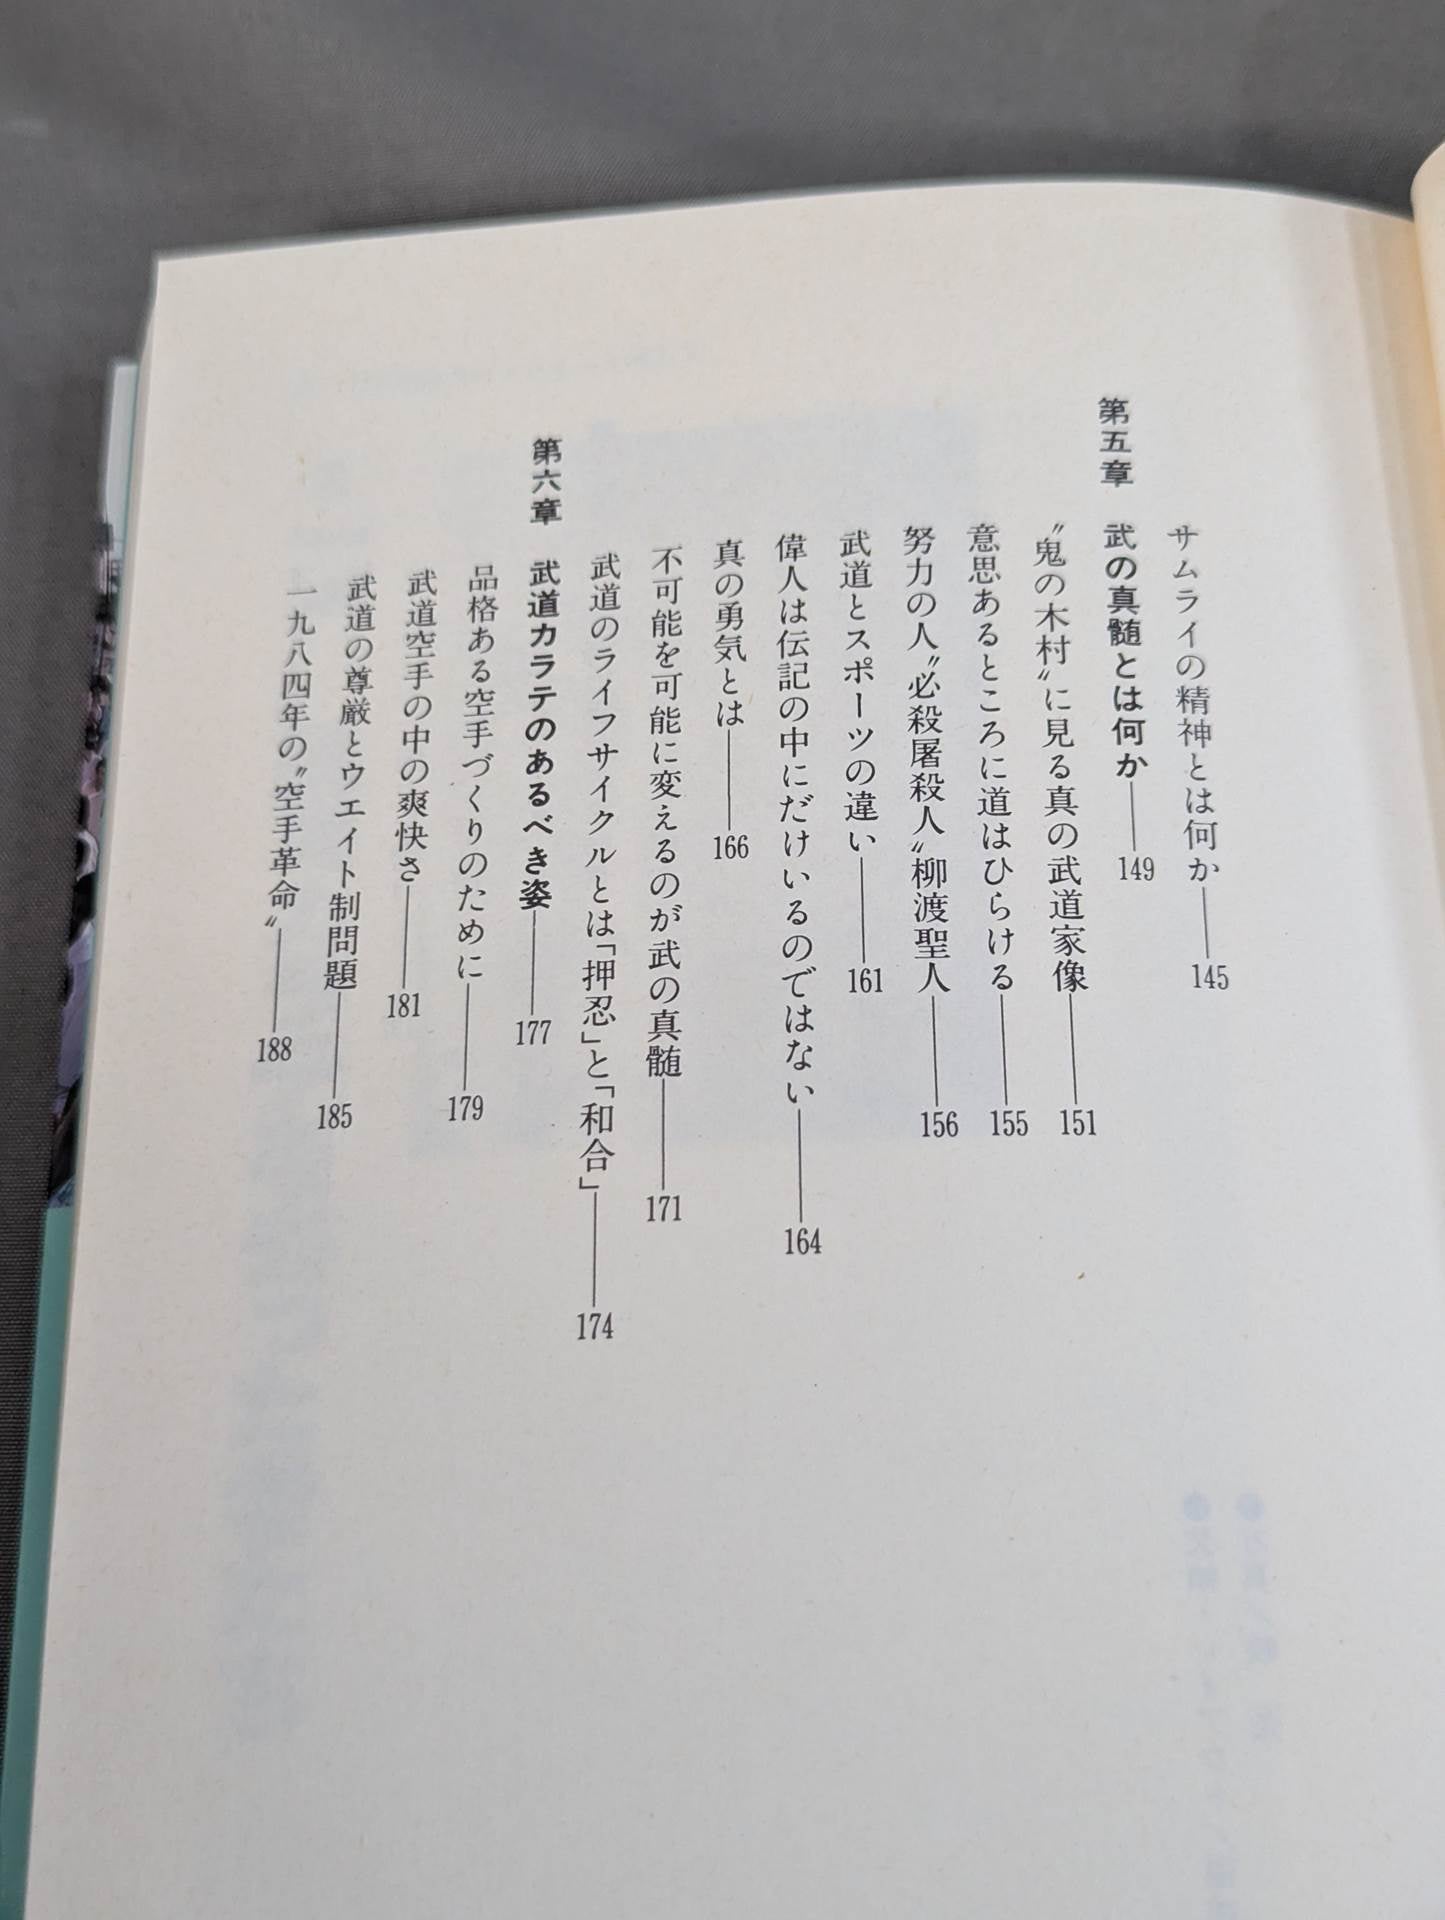 サムライの精神とは何か――145
第五章 武の真髄とは何か――149
〝鬼の木村〟に見る真の武道家像――151
意思あるところに道はひらける――155
努力の人〝必殺屠殺人〟柳渡聖人――156
武道とスポーツの違い――161
偉人は伝記の中にだけいるのではない――164
真の勇気とは――166
不可能を可能に変えるのが武の真髄――171
武道のライフサイクルとは「押忍」と「和合」――174
第六章 武道カラテのあるべき姿――177
品格ある空手づくりのために――179
武道空手の中の爽快さ――181
武道の尊厳とウエイト制問題――185
一九八四年の〝空手革命〟――188